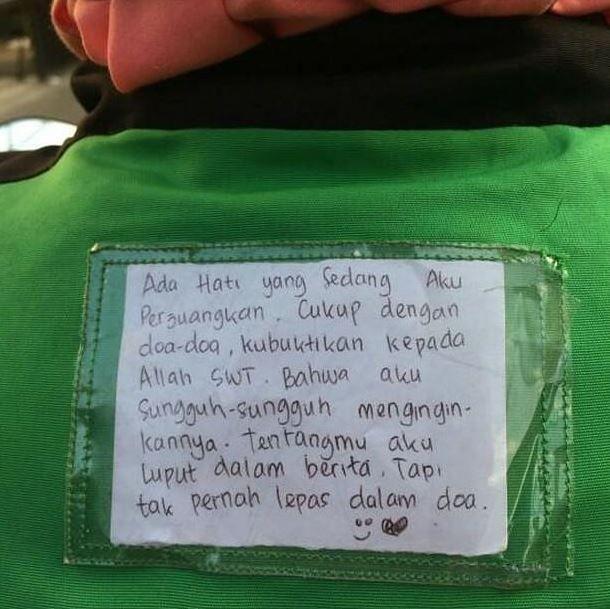 Ada Hati yang Sedang Aku
Perjuangkan. Cukup dengan
doa-doa, kubuktikan kepada
Allah SWT. Bahwa aku
Sungguh-sungguh mengingin-
kannya. Tentangmu aku
luput dalam berita. Tapi
tak pernah lepas dalam doa.